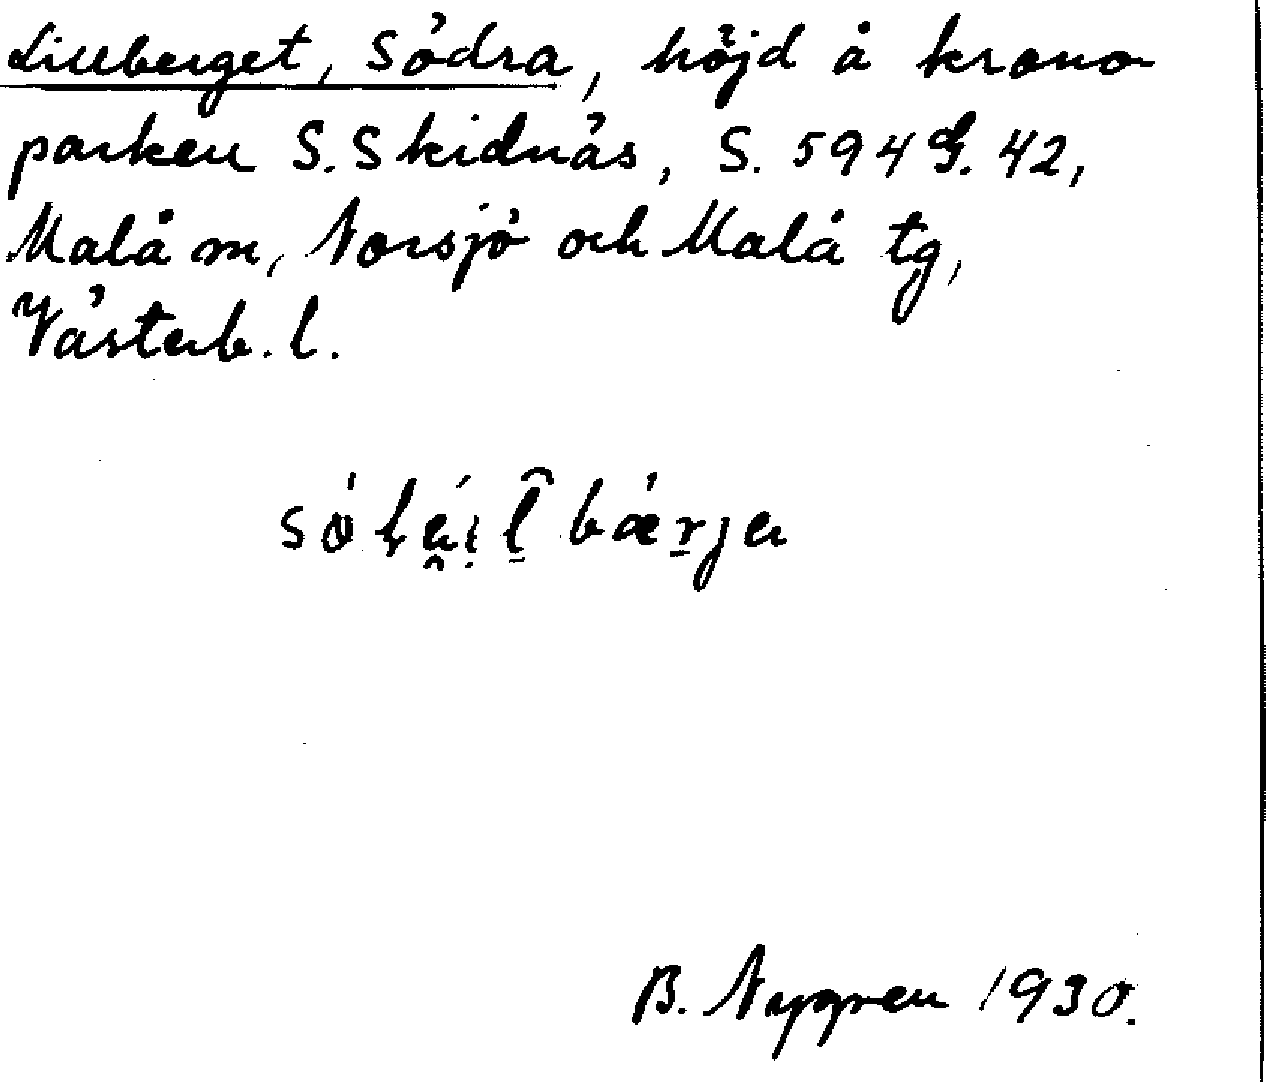 Lillberget, Södra, höjd å krono
parken S. Skidnäs, S. 594 G. 42,
Malå m, Norsjö och Malå tg,
Västerb. l.
B. Nygren 1930.